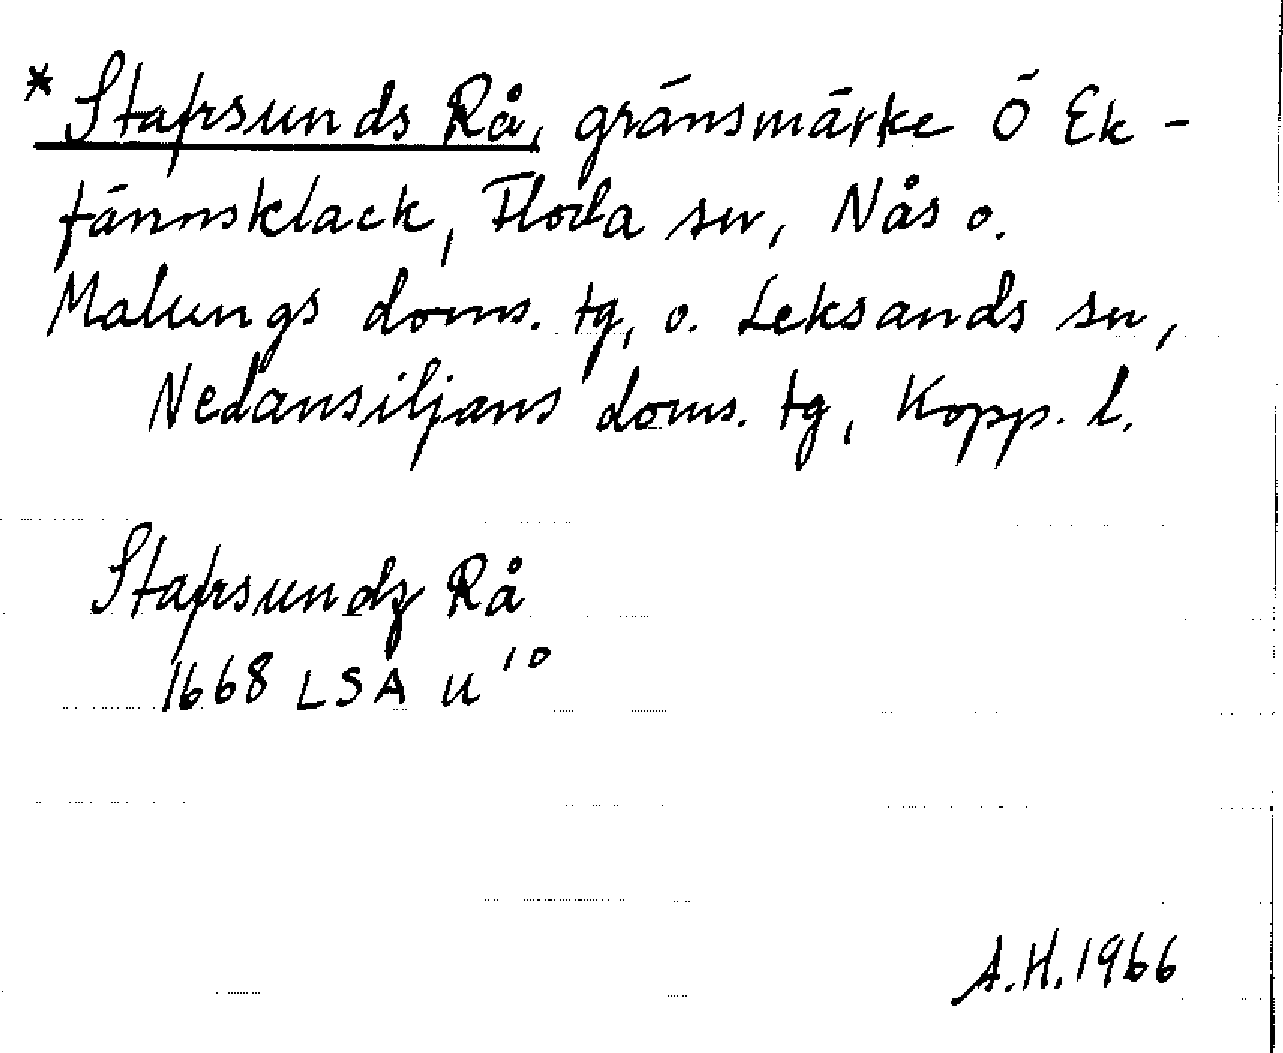 * Stafrsunds Rå, gränsmärke Ö Ek-
tännsklack, Floda sn, Nås o.
Malungs doms. tg, o. Leksands sn,
Nedansiljans doms. tg, Kopp. l.
Stafrsundz Rå
1668 LSA U¹⁰
A.H. 1966